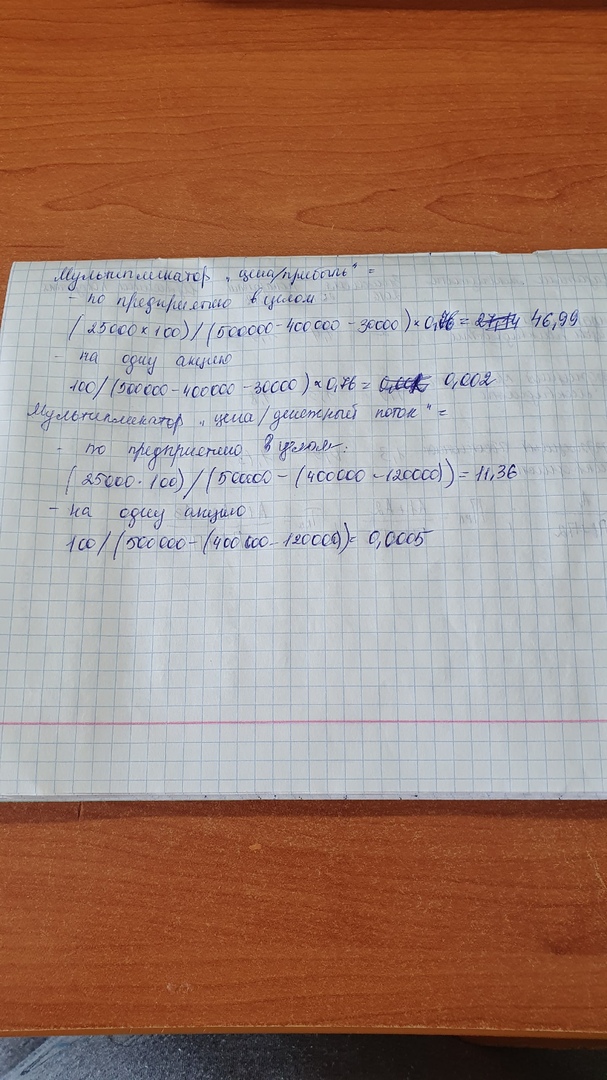 Мультипликатор „цена/прибыль" =
- по предприятию в целом
(25000 × 100) / (500000 - 400000 - 30000) × 0,76 = 46,99
- на одну акцию
100 / (500000 - 400000 - 30000) × 0,76 = 0,002
Мультипликатор „цена/денежный поток" =
- по предприятию в целом:
(25000 · 100) / (500000 - (400000 - 120000)) = 11,36
- на одну акцию
100 / (500000 - (400000 - 120000)) = 0,0005